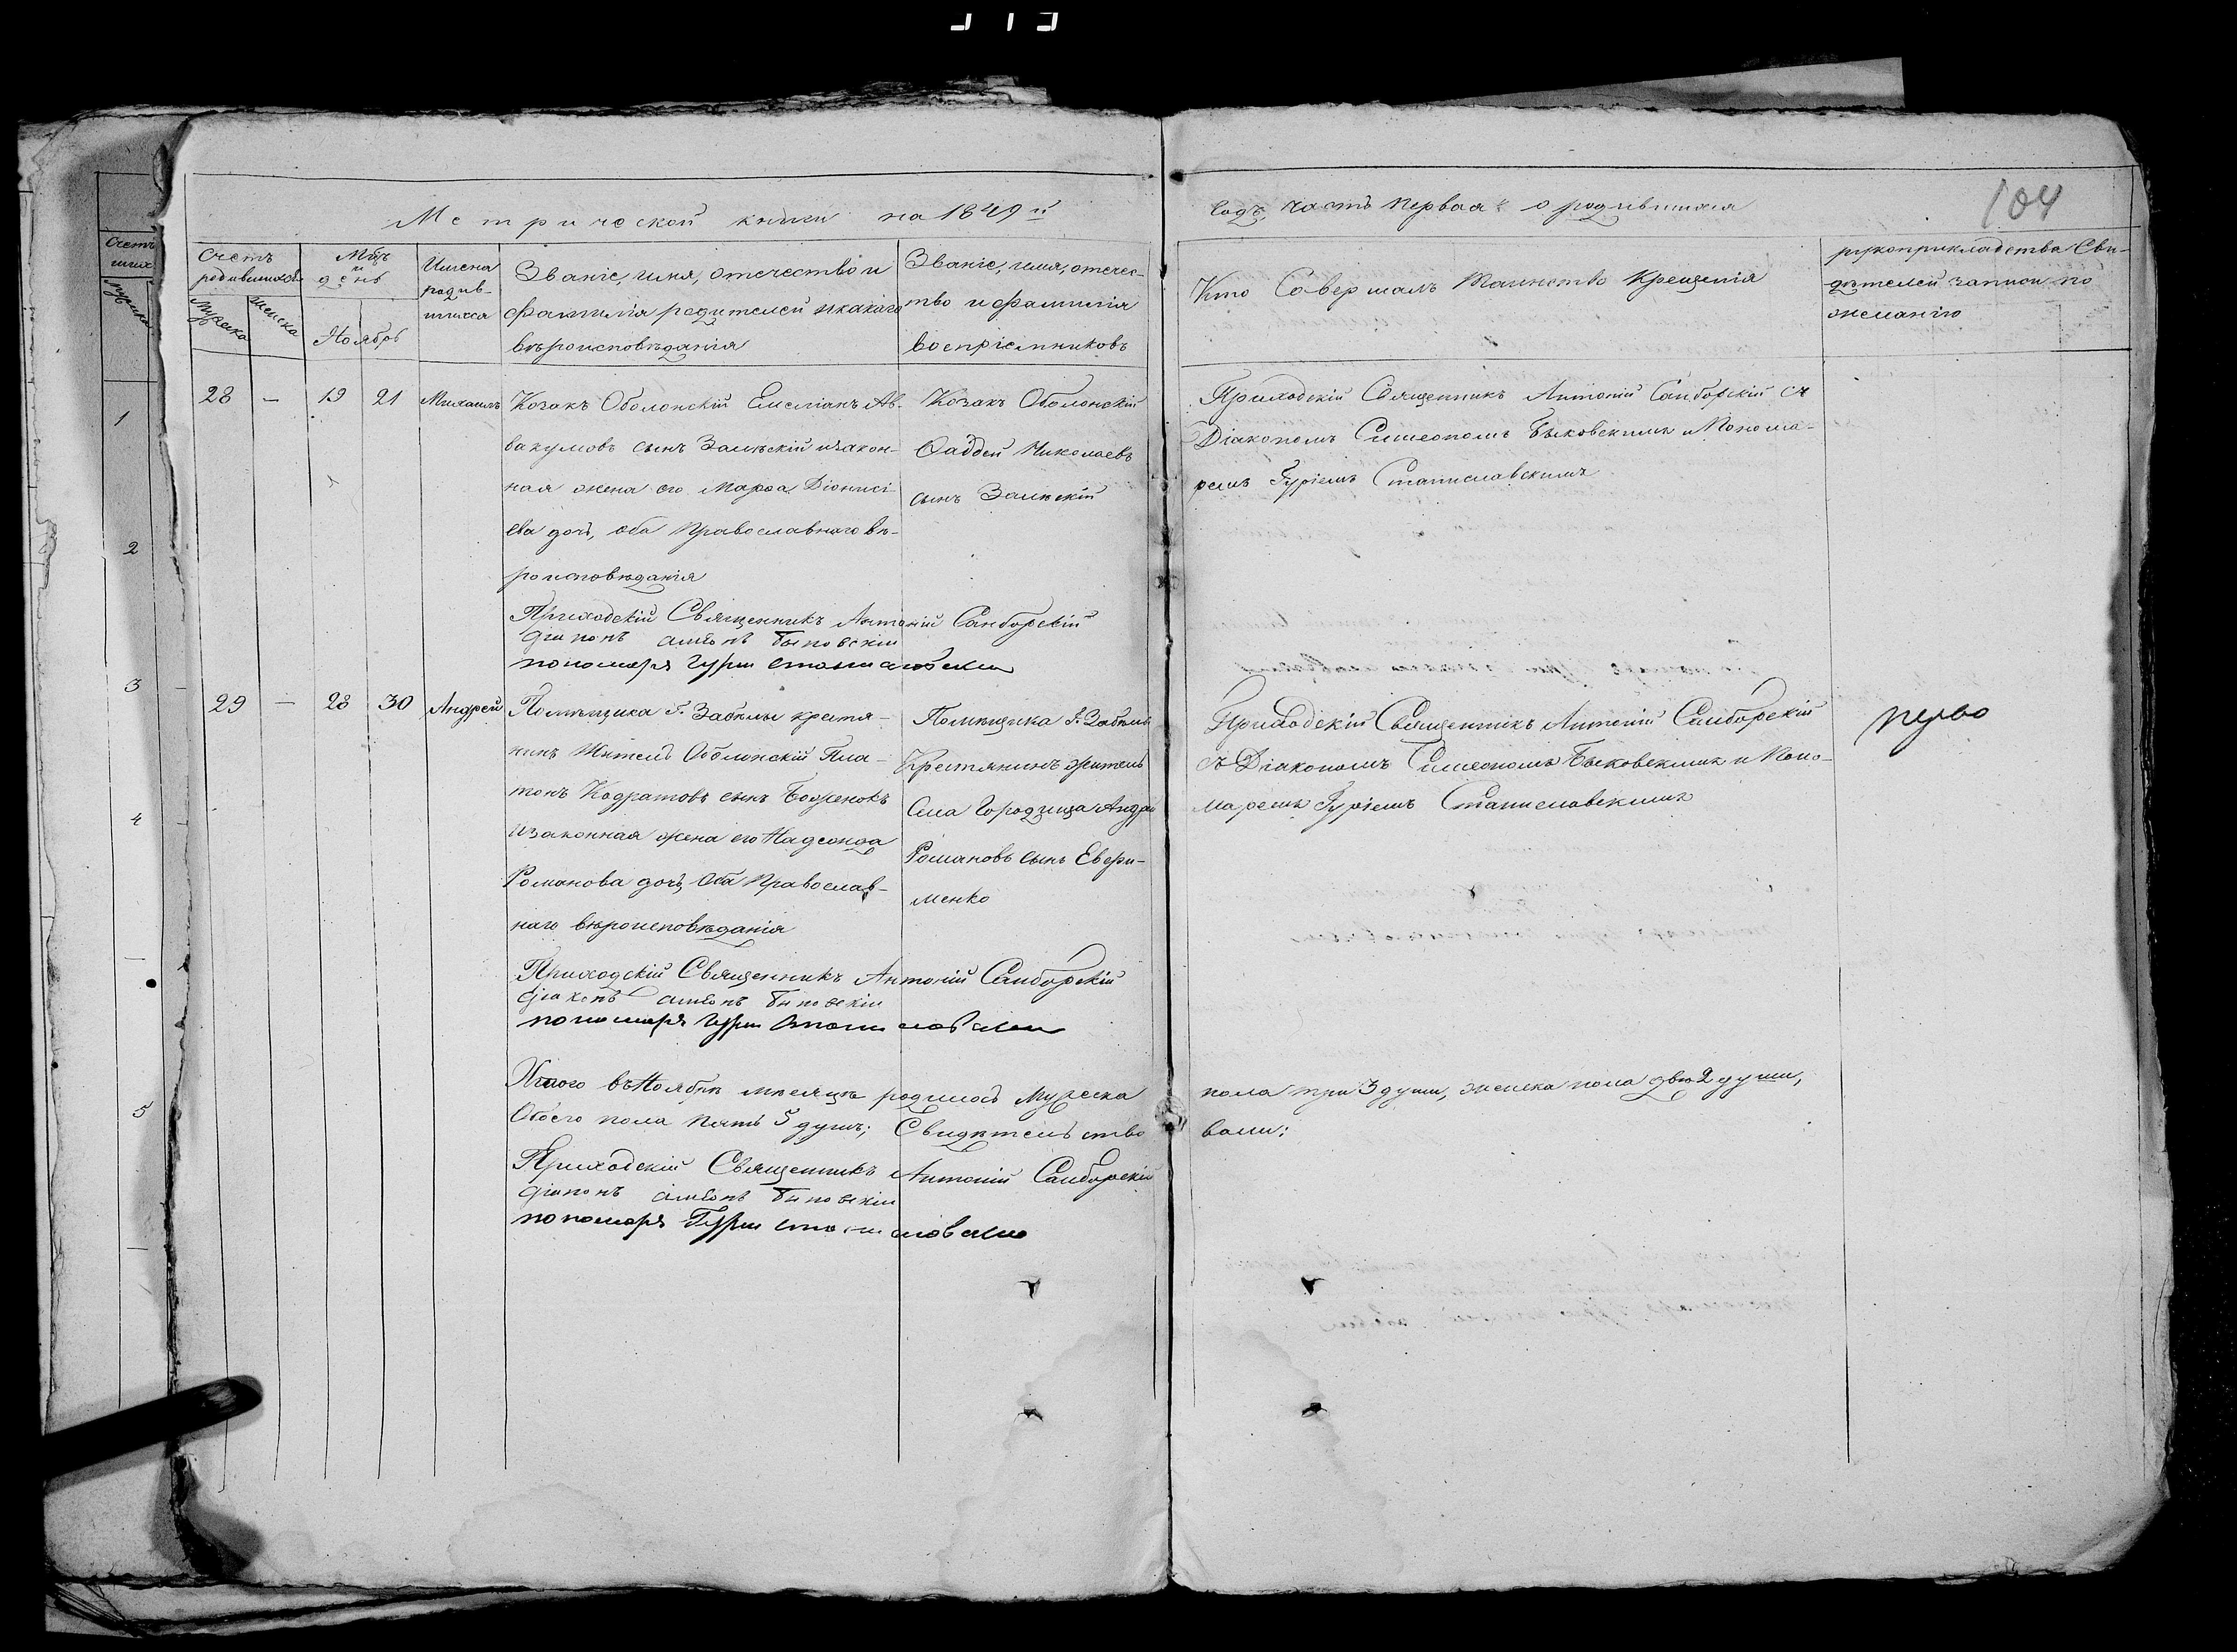 Метрической книги на 1849й
годъ, часть первая о родившихся
104
Счетъ родившихся
Мужеска
Женска
Мцъ и день
Ноябрь
Имена родив-
шихся
Званіе, имя, отечество и
фамилія родителей и какаго
вѣроисповѣданія
Званіе, имя, отечес-
тво и фамилія
воспріемниковъ
Кто совершалъ таинство крещенія
рукоприкладства сви-
дѣтелей записи по
желанію
28 — 19 21 Михаилъ
Козакъ Оболонскій Емеліанъ Ав-
вакумовъ сынъ Залѣскій и закон-
ная жена его Марфа Діонисі-
ева дочь, оба Православнаго вѣ-
роисповѣданія
Козакъ Оболонскій
Фаддей Николаевъ
сынъ Залѣскій
Приходскій Священникъ Антоній Самборскій съ
Діакономъ Симеономъ Быковскимъ и Понома-
ремъ Гуріемъ Станиславскимъ
Приходскій Священникъ Антоній Самборскій
діаконъ симеонъ Быковскій
пономарь Гурій Станиславскій
29 — 28 30 Андрей
Помѣщика Г. Забѣлы крестя-
нинъ Житель Оболонскій Пла-
тонъ Кодратовъ сынъ Боженокъ
и законная жена его
Романова дочь, оба Православ-
наго вѣроисповѣданія
Помѣщика Г. Забѣлы
Крестянинъ житель
Села Городища Андрей
Романовъ сынъ
менко
Приходскій Священникъ Антоній Самборскій
съ Діакономъ Симеономъ Быковскимъ и Поно-
маремъ Гуріемъ Станиславскимъ
Приходскій Священникъ Антоній Самборскій
діаконъ симеонъ Быковскій
пономарь Гурій Станиславскій
Итого въ Ноябрѣ мѣсяцѣ родилось Мужеска
пола три 3 души, женска пола двѣ 2 души,
Обоего пола пять 5 душъ; Свидѣтельство
вали:
Приходскій Священникъ Антоній Самборскій
діаконъ симеонъ Быковскій
пономарь Гурій Станиславскій
Счетъ
1
2
3
4
5